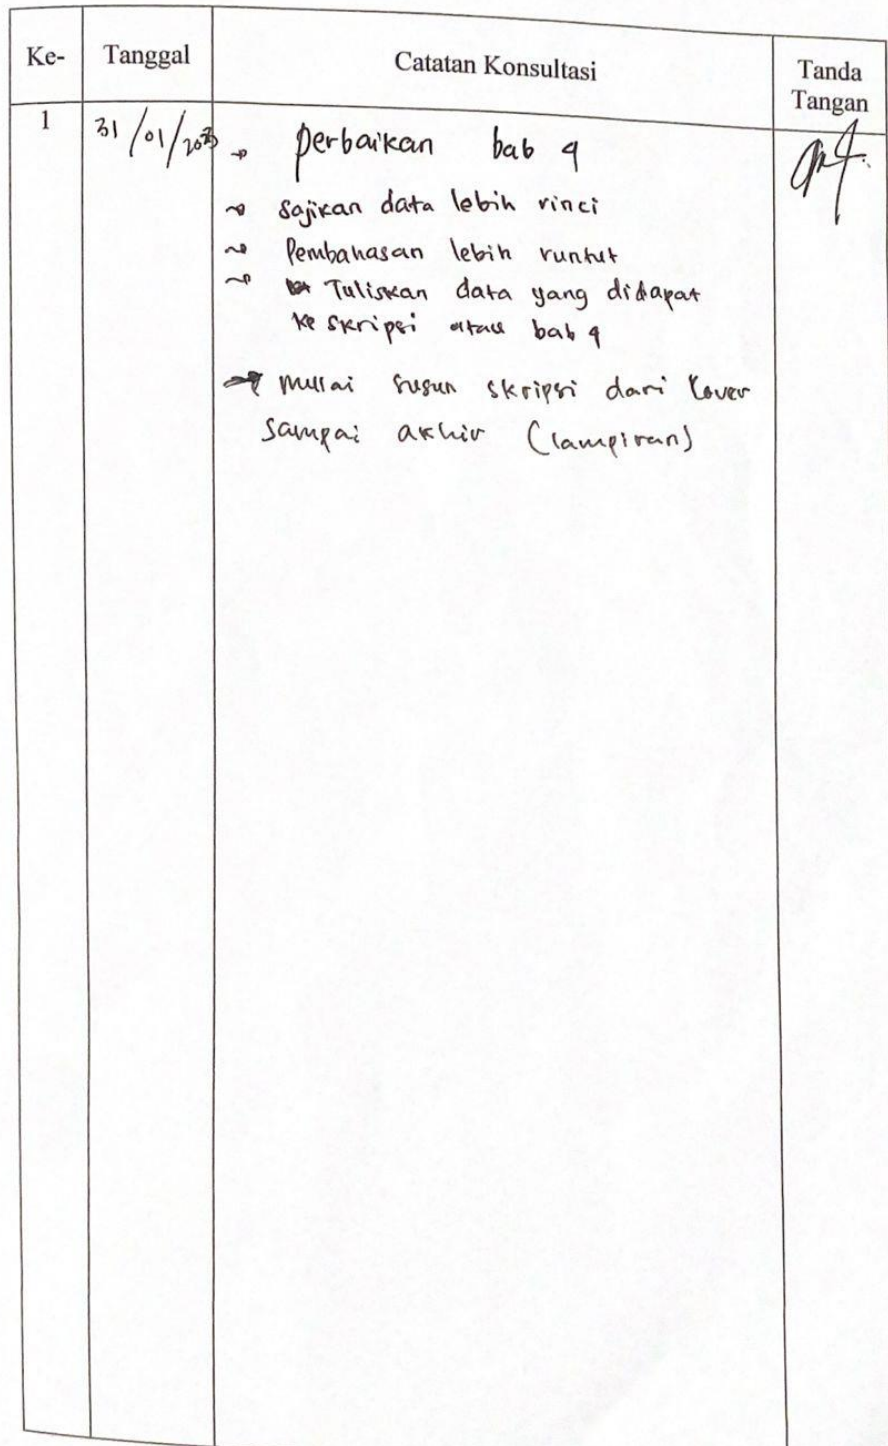 Ke- Tanggal Catatan Konsultasi Tanda
Tangan
1 31/01/2023 → perbaikan bab 4
→ Sajikan data lebih rinci
→ Pembahasan lebih runtut
→ Tuliskan data yang didapat
ke skripsi atau bab 4
→ mulai susun skripsi dari Cover
sampai akhir (lampiran)